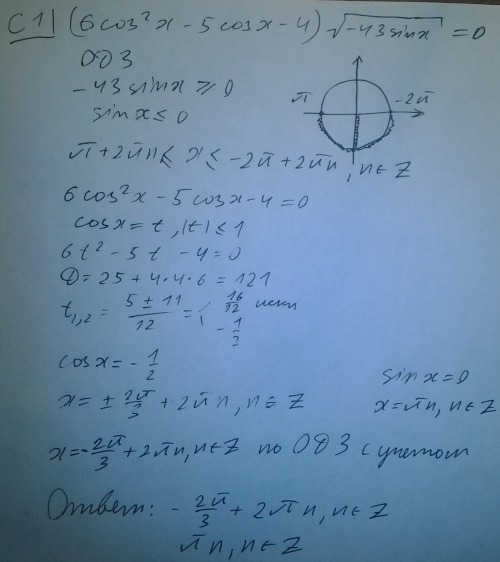 С1 (6cos²x - 5cosx - 4)√(-43sinx) = 0
ОДЗ
-43sinx ⩾ 0
sinx ≤ 0
π -2π
π+2πn ≤ x ≤ -2π+2πn, n∈Z
6cos²x - 5cosx - 4 = 0
cosx = t, |t| ≤ 1
6t² - 5t - 4 = 0
D = 25 + 4·4·6 = 121
t₁,₂ = (5 ± 11)/12 = ⟨ 16/12 искл
-1/2
cosx = -1/2
sinx = 0
x = ± 2π/3 + 2πn, n∈Z
x = πn, n∈Z
x = -2π/3 + 2πn, n∈Z по ОДЗ с учетом
Ответ: -2π/3 + 2πn, n∈Z
πn, n∈Z